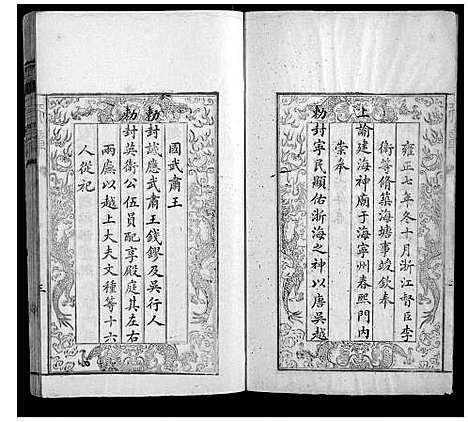 雍正七年冬十月浙江督臣李
衛等脩築海塘事竣欽奉
上諭建海神廟于海寧州春熙門內
崇奉
勅封寧民顯佑浙海之神以唐吳越
國武肅王
勅封誠應武肅王錢鏐及吳行人
勅封英衛公伍員配享殿庭其左右
兩廡以越上大夫文種等十六
人從祀